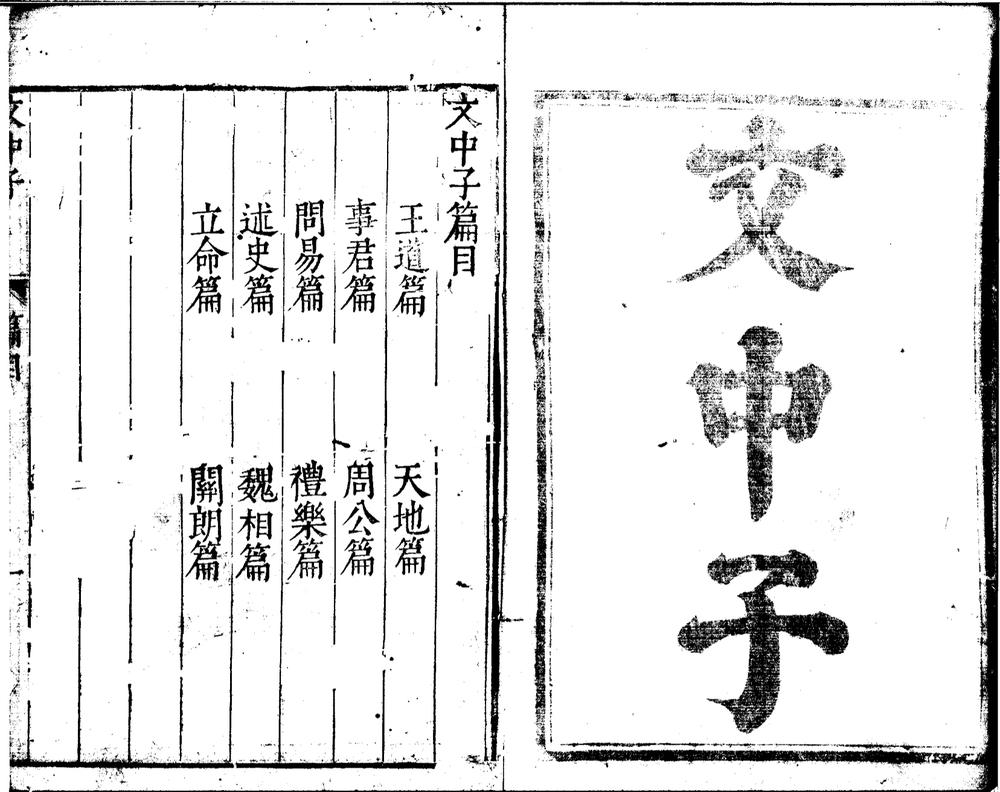 文中子
文中子篇目
王道篇 天地篇
事君篇 周公篇
問易篇 禮樂篇
述史篇 魏相篇
立命篇 關朗篇
文中子 篇目 一